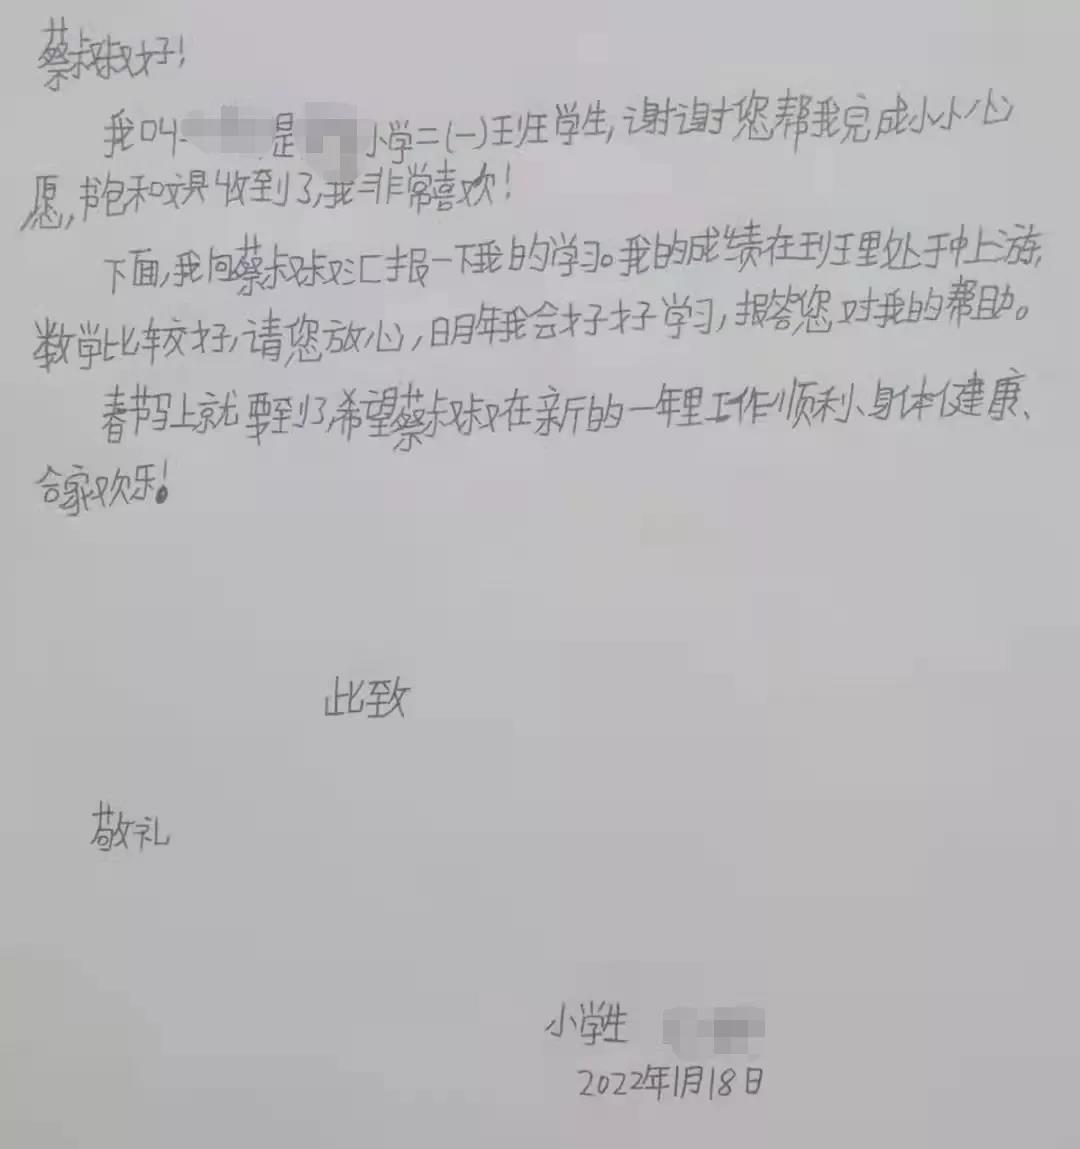 蔡叔叔好!
我叫 是 小学二(一)班学生,谢谢您帮我完成小小心
愿,书包和文具收到了,我非常喜欢!
下面,我向蔡叔叔汇报一下我的学习。我的成绩在班里处于中上游,
数学比较好,请您放心,明年我会好好学习,报答您对我的帮助。
春节马上就要到了,希望蔡叔叔在新的一年里工作顺利、身体健康、
合家欢乐!
此致
敬礼
小学生
2022年1月18日